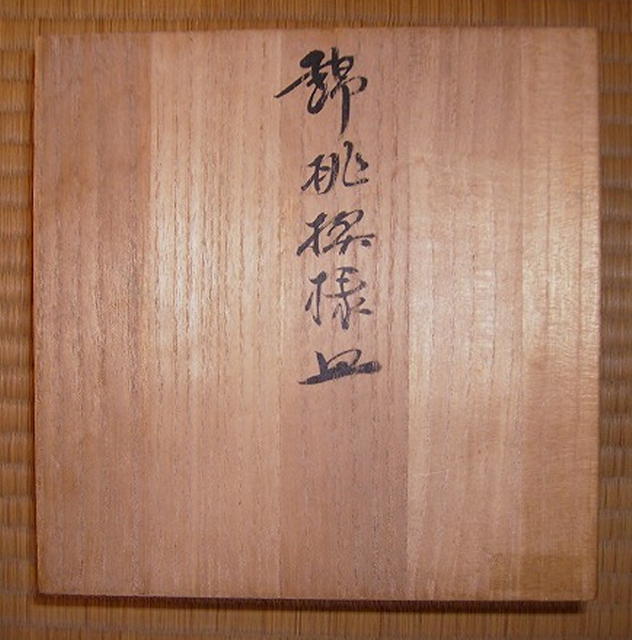 錦桃模様皿